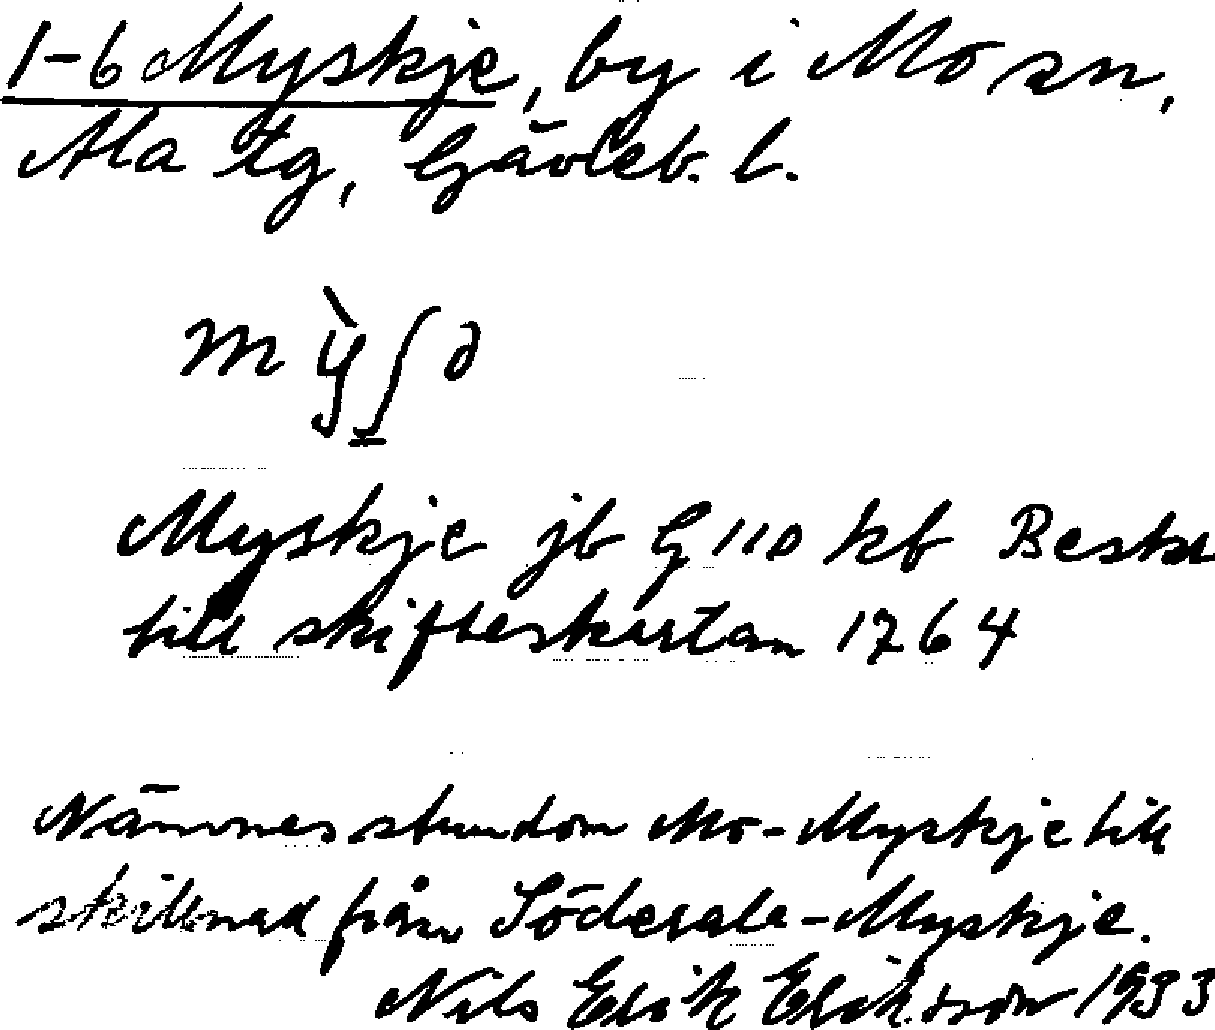 1-6 Myskje, by i Mo sn,
Ala tg, Gävleb. l.
Myskje jb G 110 kb Beskr
till skifteskartan 1764
Nämnes stundom Mo-Myskje till
skillnad från Söderala-Myskje.
Nils Erik Eriksson 1933